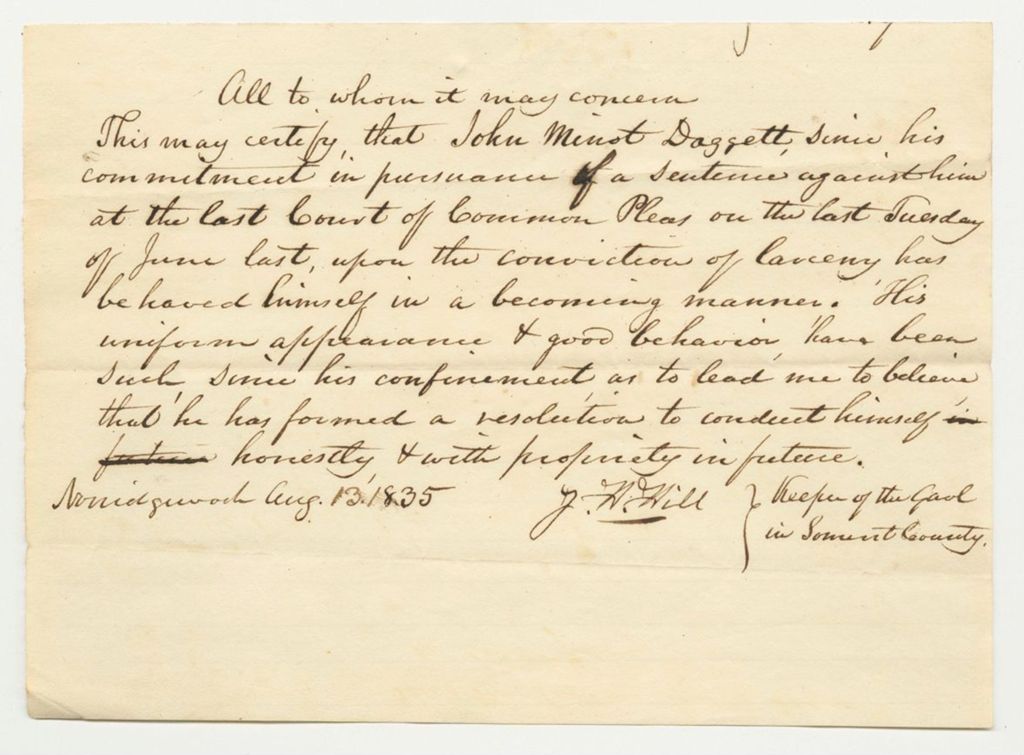 All to whom it may concern
This may certify, that John Minot Daggett, since his
commitment in pursuance of a sentence against him
at the last Court of Common Pleas on the last Tuesday
of June last, upon the conviction of larceny has
behaved himself in a becoming manner. His
uniform appearance & good behavior have been
such since his confinement, as to lead me to believe
that he has formed a resolution to conduct himself in
future honestly, & with propriety in future.
Norridgewock Aug. 13, 1835 J. H. Hill } Keeper of the Gaol
in Somerset County.